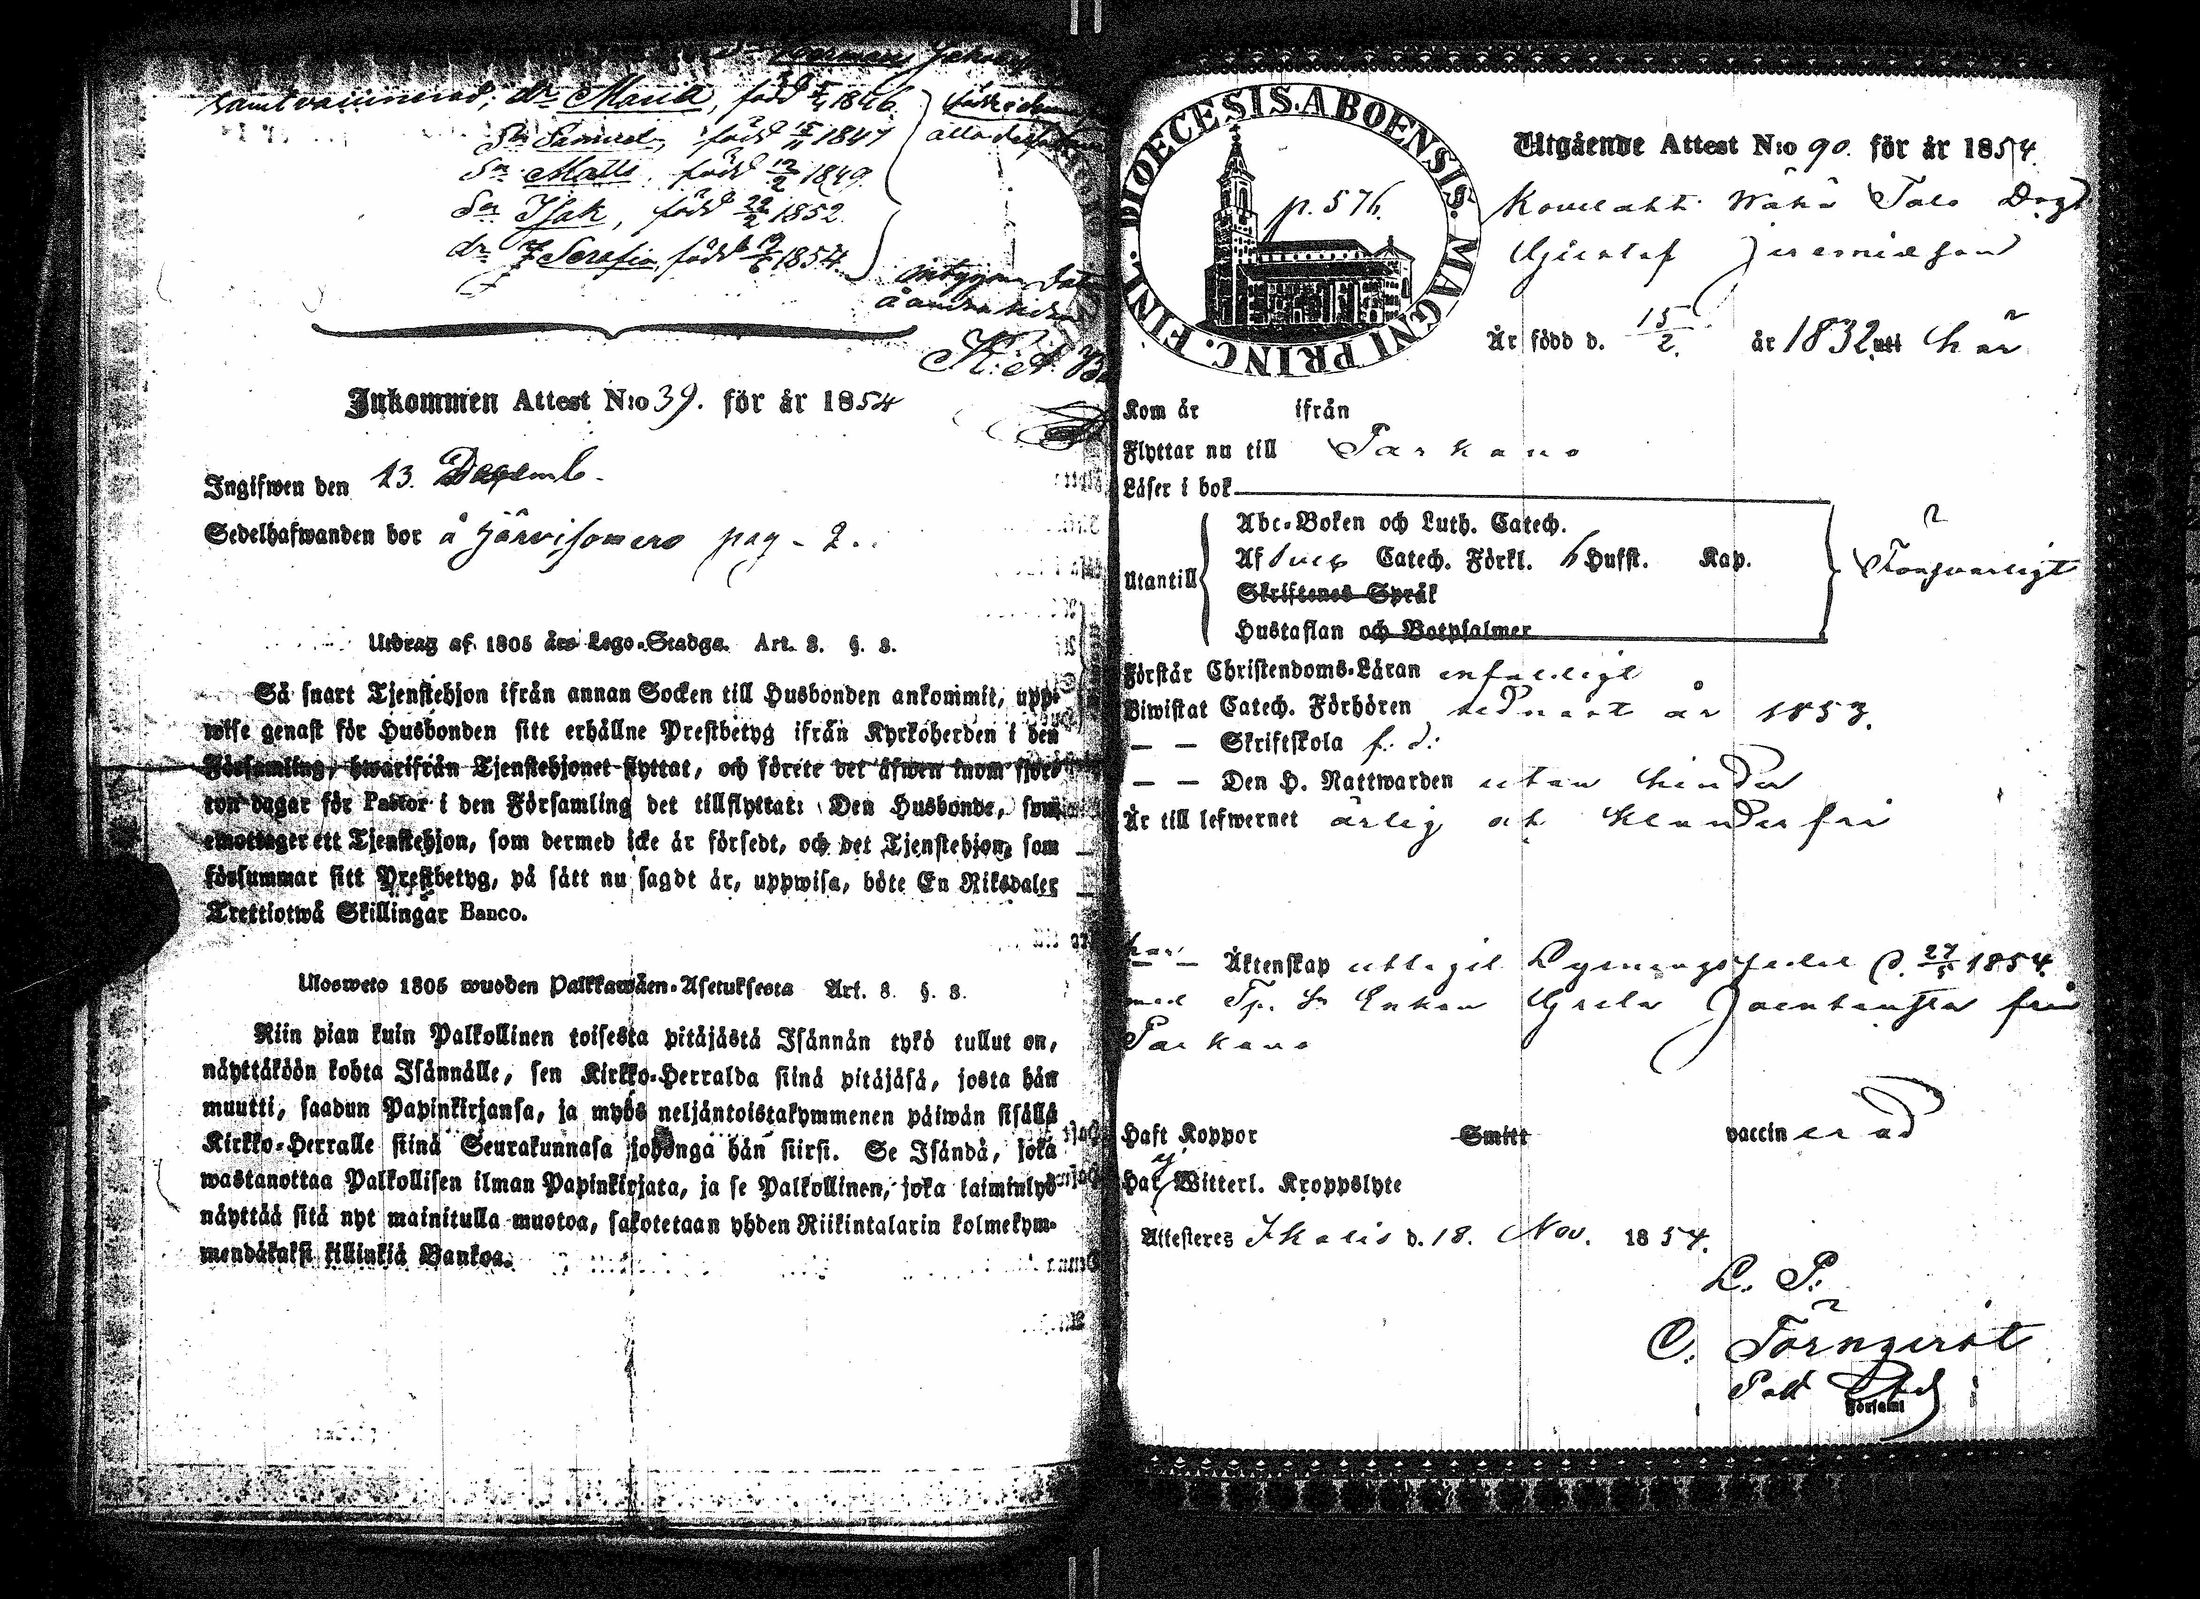 samt vaccinerad; dr. Maria, född 1846.
Sn Samuel, född 1847
Sn Matts, född 12/2 1849.
Sn Isak, född 22/2 1852.
dr Serafia, född 1854.
intygar
å andra sidan
Inkommen Attest N:o 39. för år 1854
Ingifwen den 13. Decemb.
Sedelhafwanden bor å pag. 2.
Utdrag af 1805 års Lego-Stadga. Art. 3. §. 3.
Så snart Tjenstehjon ifrån annan Socken till Husbonden ankommit, upp-
wise genast för Husbonden sitt erhållne Prestbetyg ifrån Kyrkoherden i den
Församling, hwarifrån Tjenstehjonet flyttat, och förete det äfwen inom fjor-
ton dagar för Pastor i den Församling det tillflyttat: Den Husbonde, som
emottager ett Tjenstehjon, som dermed icke är försedt, och det Tjenstehjon, som
försummar sitt Prestbetyg, på sått nu sagdt är, uppwisa, böte En Riksdaler
Trettiotwå Skillingar Banco.
Ulosweto 1805 wuoden Palkkawäen-Asetuksesta Art. 3. §. 3.
Niin pian kuin Palkollinen toisesta pitäjästä Isännän tykö tullut on,
näyttäköön kohta Isännälle, sen Kirkko-Herralda siinä pitäjäsä, josta hän
muutti, saadun Papinkirjansa, ja myös neljäntoistakymmenen päiwän sisällä
Kirkko-Herralle siinä Seurakunnasa johonga hän siirsi. Se Isändä, joka
wastanottaa Palkollisen ilman Papinkirjata, ja se Palkollinen, joka laiminlyö
näyttää sitä nyt mainitulla muotoa, sakotetaan yhden Riikintalarin kolmekym-
mendäkaksi killinkiä Bankoa.
DIOECESIS. ABOENSIS. MAGNI PRINC. FINL.
p. 576.
Utgående Attest N:o 90. för år 1854.
Kovelahti Wähä Talo Drgn
Gustaf Jeremiasson
Är född d. 15/2. år 1832 uti här
Kom år ifrån
Flyttar nu till Parkano
Läser i bok
Utantill
Abc-Boken och Luth. Catech.
Af Sveb Catech. Förkl. 6 Hufst. Kap.
Skriftenes Språk
Hustaflan och Botpsalmer
Försvarligt
Förstår Christendoms-Läran enfaldigt
Biwistat Catech. Förhören sednast år 1853.
— — Skriftskola f. d.
— — Den H. Nattwarden utan hinder
Är till lefwernet ärlig och klanderfri
har
— Äktenskap uttagit Lysningssedel d. 27/5 1854
med Greta från
Parkano
Haft Koppor Smitt vaccinerad
Har ej Witterl. Kroppslyte
Attesteras Ikalis d. 18. Nov. 1854.
L. P.
C. Törnqvist
Församl